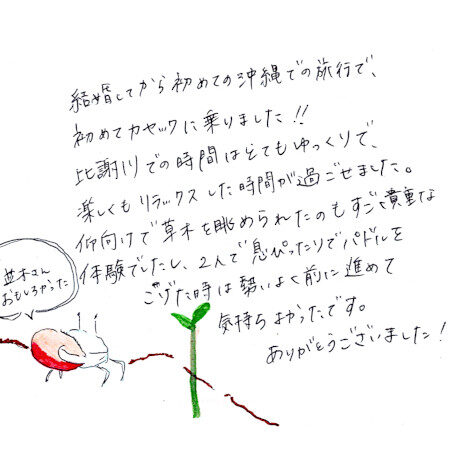 結婚してから初めての沖縄での旅行で、
初めてカヤックに乗りました!!
比謝川での時間はとてもゆっくりで、
楽しくもリラックスした時間が過ごせました。
仰向けで草木を眺められたのもすごく貴重な
体験でしたし、2人で息ぴったりでパドルを
こげた時は勢いよく前に進めて
気持ちよかったです。
ありがとうございました!
並木さん
おもしろかった